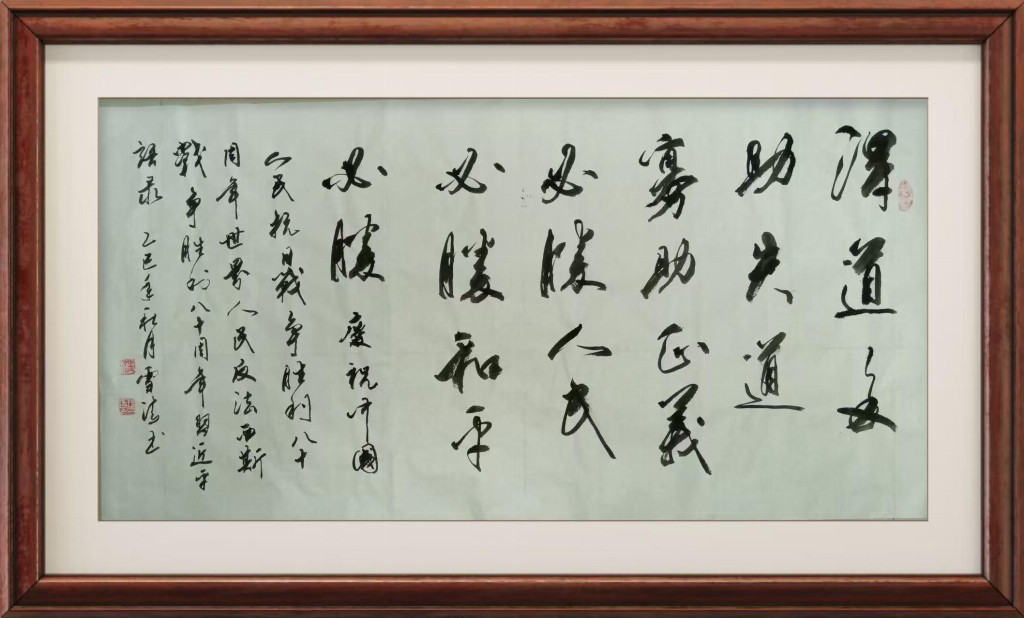 得道多
助失道
寡助正義
必勝人民
必勝和平
必勝 慶祝中國
人民抗日戰争胜利八十
周年世界人民反法西斯
戰争胜利八十周年習近平
語录 乙巳年秋月雪书